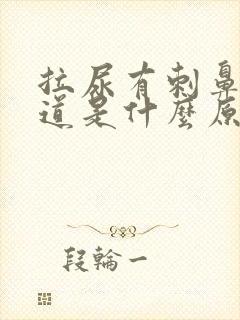 拉尿有刺鼻
道是什麼原
段輪一